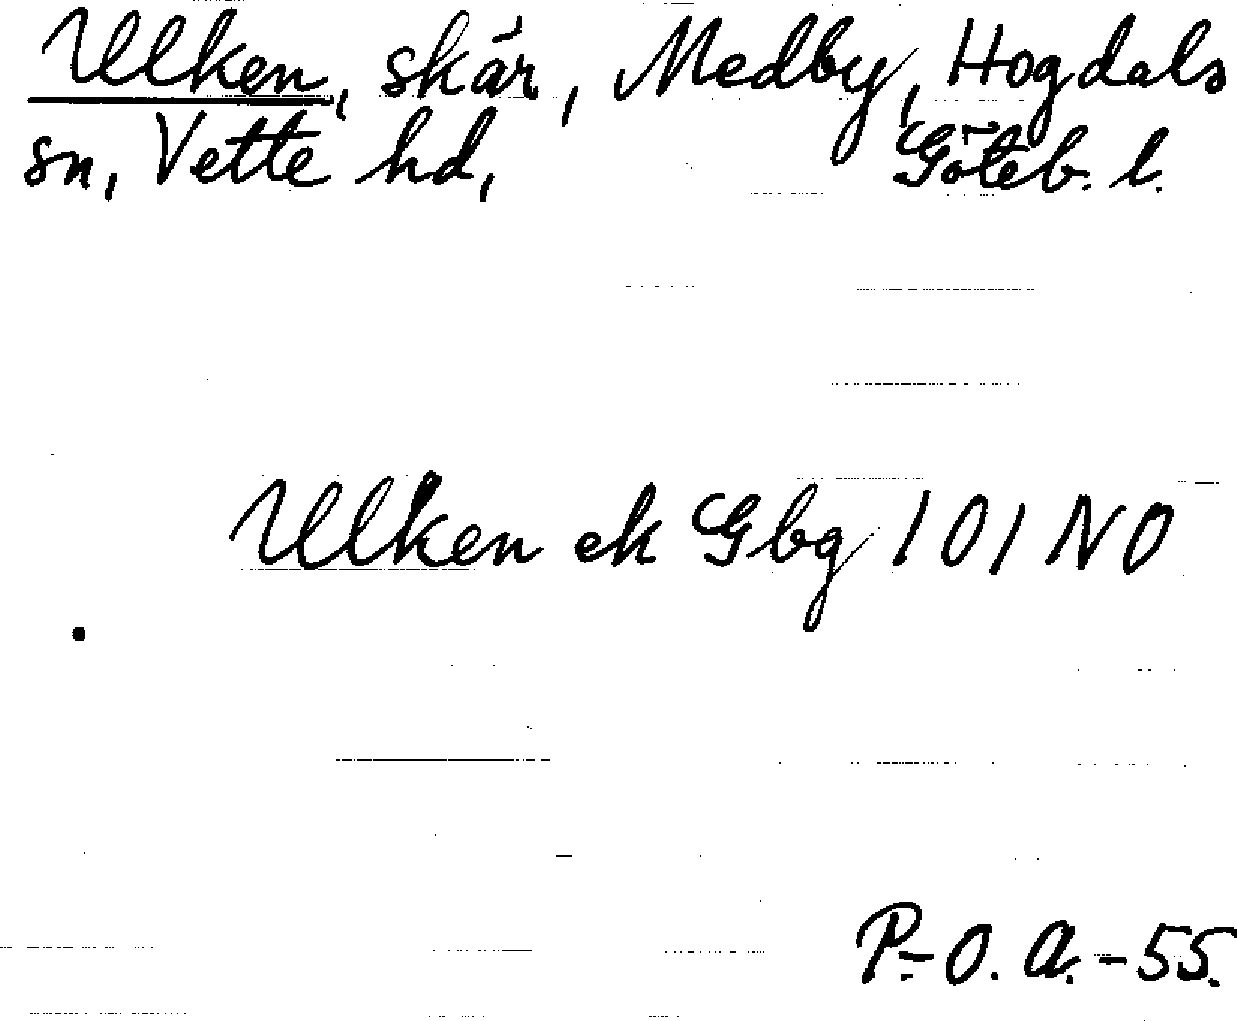 Ulken, skär, Medby, Hogdals
sn, Vette hd, Göteb. l.
Ulken ek Gbg 101 NO
P.-O. A. -55.